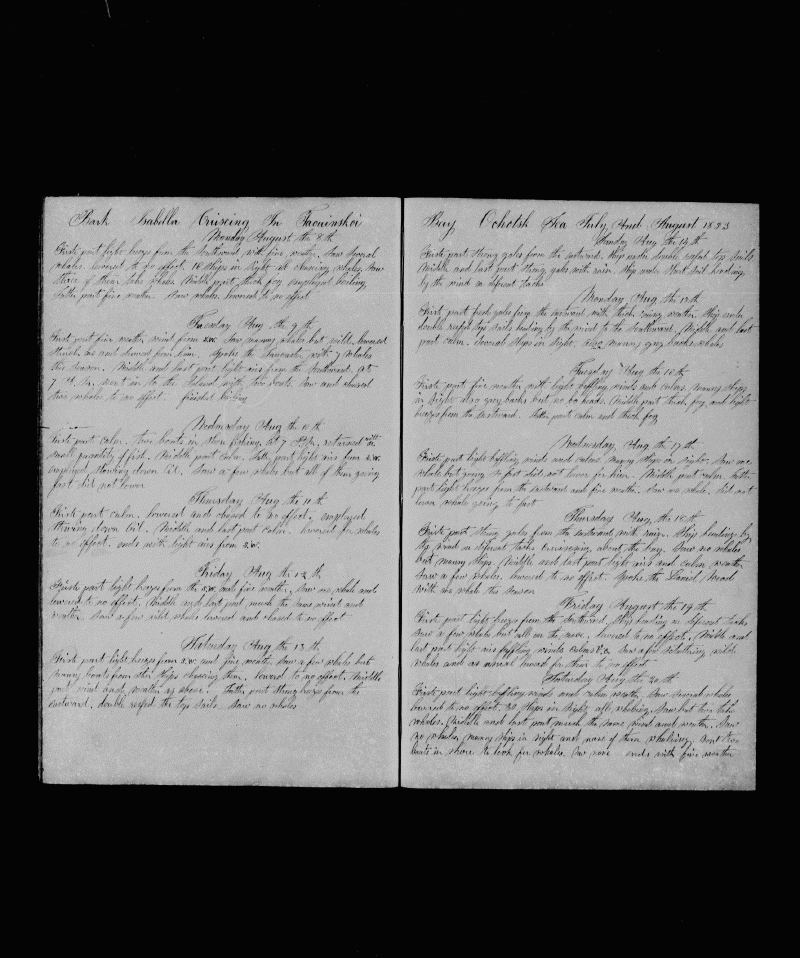 Bark Isabella Cruiseing In Taouinskoi
Monday August the 8th
Firste part light breeze from the Southward with fine weather. Saw several
whales. lowered to no effect. 16 Ships in Sight all chaseing whales. Saw
three of them take whales. Middle part thick fog employed boiling
Latter part fine weather. Saw whales. lowered to no effect
Tuesday Aug the 9th
Firste part fine weather wind from S.W. Saw many whales but wild. lowered
struck one and drawed from him. Spoke the with 7 whales
this season. Middle and last part light airs from the Southward. At
7 P.M. went in to the Island with two boats. Saw and chased
two whales to no effect. finished boiling
Wednesday Aug the 10th
Firste part calm. two boats in shore fishing. At 7 P.M. returned with
small quantity of fish. Middle part calm. Latter part light airs from S.W.
employed stowing down oil. Saw a few whales but all of them going
fast did not lower
Thursday Aug the 11th
Firste part calm. lowered and chased to no effect. employed
stowing down oil. Middle and last part calm. lowered for whales
to no effect. ends with light airs from S.W.
Friday Aug the 12th
Firste part light breeze from the S.W. and fine weather. Saw one whale and
lowered to no effect. Middle and last part much the same wind and
weather. Saw a few whales lowered and chased to no effect
Saturday Aug the 13th
Firste part light breeze from S.W. and fine weather. Saw a few whales but
many boats from other Ships chaseing them. lowered to no effect. Middle
part wind and weather as above. Latter part strong breeze from the
eastward. double reefed the top sails. Saw no whales
Bay Ochotsk Sea July And August 1853
Sunday Aug the 14th
Firste part strong gales from the eastward. Ship under double reefed top sails
Middle and last part strong gales with rain. Ship under Short Sail heading
by the wind on diferent tacks
Monday Aug the 15th
Firste part fresh gales from the eastward with thick rainy weather. Ship under
double reefed top sails heading by the wind to the Southward. Middle and last
part calm. Several Ships in Sight. also many grey backs whales
Tuesday Aug the 16th
Firste part fine weather with light baffling winds and calms. many Ships
in Sight. also grey backs but no bo heads. Middle part thick fog and light
breeze from the eastward. latter part calm and thick fog
Wednesday, Aug the 17th
Firste part light baffling winds and calms many Ships in Sight. Saw one
whale but going so fast did not lower for him. Middle part calm. latter
part light breeze from the eastward and fine weather. Saw one whale. did not
lower whale going to fast
Thursday Aug the 18th
Firste part strong gales from the eastward with rain. Ship heading by
the wind on diferent tacks Cruiseing about the bay. Saw no whales
but many Ships. Middle and last part light airs and calm weather
Saw a few whales. lowered to no effect. Spoke the Daniel Wood
with one whale this season
Friday August the 19th
Firste part light breeze from the Southward. Ship heading on diferent tacks
Saw a few whales but all on the move. lowered to no effect. Middle and
last part light airs baffling winds calms &c. Saw a few wild
whales and as useual lowered for them to no effect
Saturday Aug the 20th
Firste part light baffling winds and calm weather. Saw several whales
lowered to no effect. 20 Ships in Sight all whaleing. Saw but two take
whales. Middle and last part much the same wind and weather. Saw
no whales. many Ships in Sight and none of them whaleing. Sent two
boats in shore to look for whales. Saw none ends with fine weather